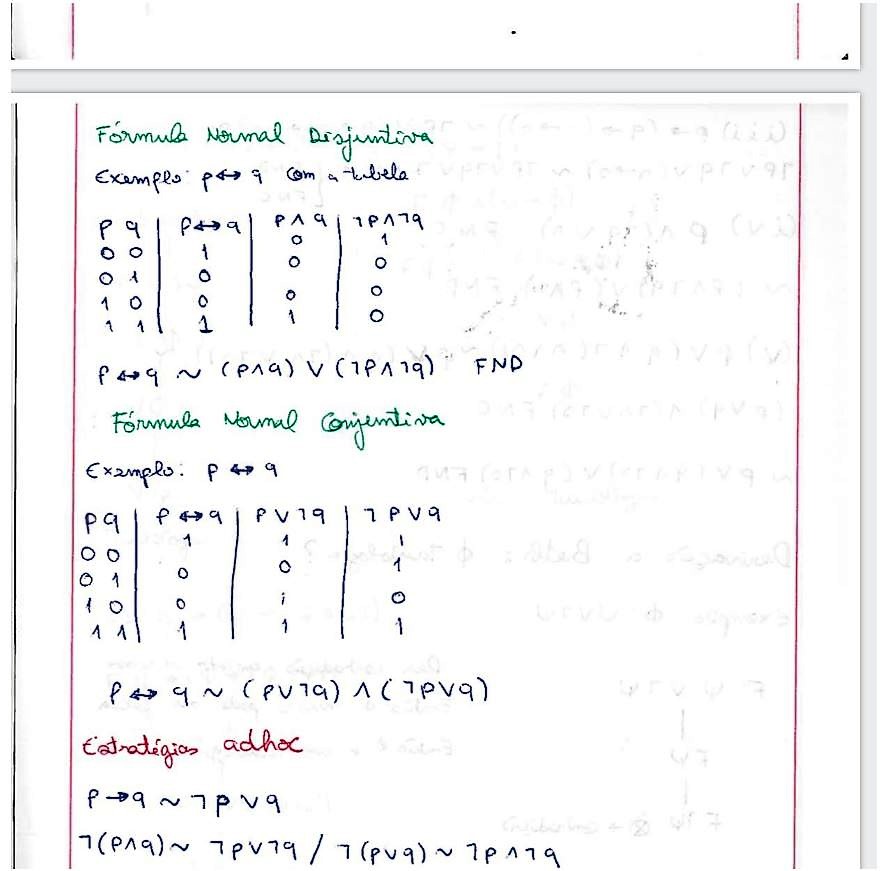 Fórmula Normal Disjuntiva
Exemplo: p ↔ q com a tabela
p q | p↔q | p ∧ q | ¬p∧¬q
0 0 | 1 | 0 | 1
0 1 | 0 | 0 | 0
1 0 | 0 | 0 | 0
1 1 | 1 | 1 | 0
p ↔ q ~ (p∧q) ∨ (¬p∧¬q) FND
Fórmula Normal Conjentiva
Exemplo: p ↔ q
p q | p ↔ q | p ∨ ¬q | ¬p∨q
0 0 | 1 | 1 | 1
0 1 | 0 | 0 | 1
1 0 | 0 | 1 | 0
1 1 | 1 | 1 | 1
p ↔ q ~ (p∨¬q) ∧ (¬p∨q)
Estratégias adhoc
p → q ~ ¬p ∨ q
¬(p∧q) ~ ¬p∨¬q / ¬(p∨q) ~ ¬p∧¬q